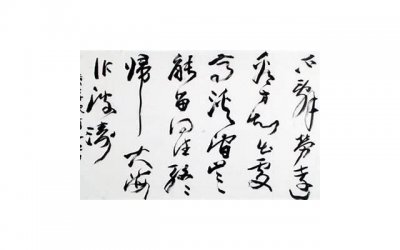 不辭勞遠
看方知出處
高溪澗豈
能留得住終
歸大海
作波濤